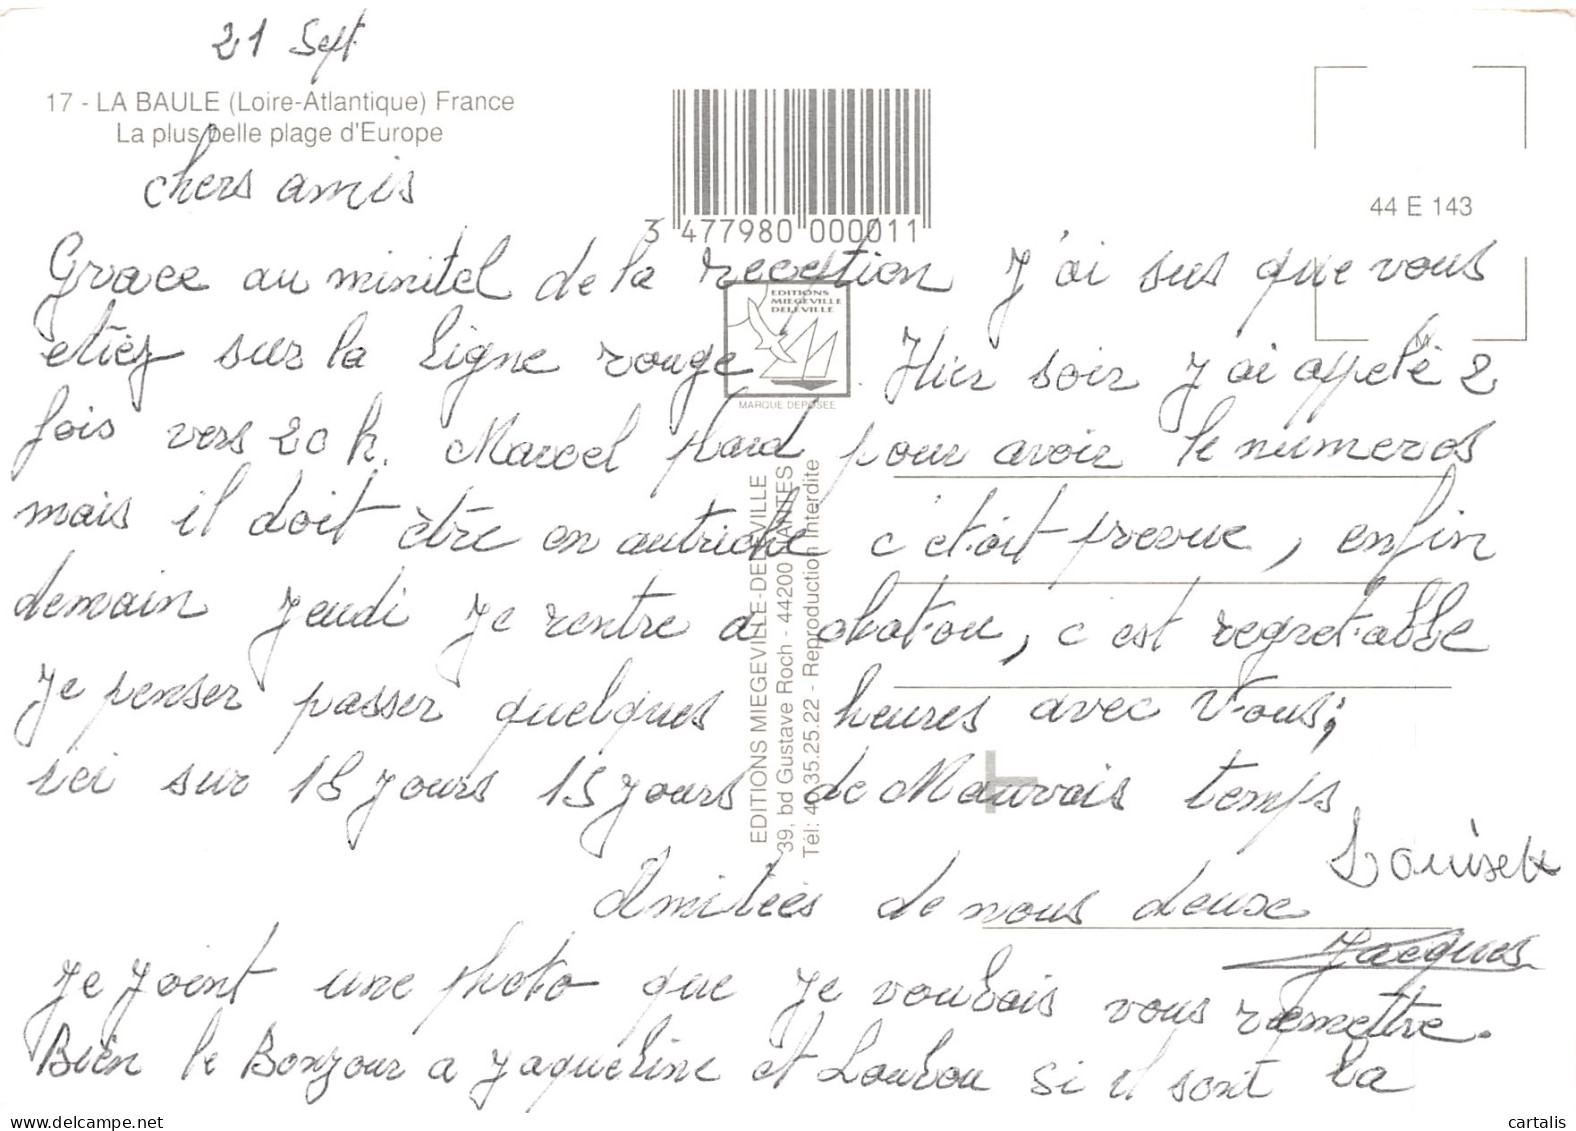 21 Sept
17 - LA BAULE (Loire-Atlantique) France
La plus belle plage d'Europe
3 477980 000011
44 E 143
chers amis
Grace au minitel de la reception J'ai sus que vous
etiez sur la ligne rouge. Hier soir J'ai appelé 2
fois vers 20 h. Marcel pour avoir le numeros
mais il doit être en autriche c'etait prevue, enfin
demain Jeudi Je rentre a chatou, c'est regretable
Je penser passer quelques heures avec Vous;
ici sur 18 Jours 15 Jours de Mauvais temps
Amitiées de nous deuxe
Louisette
Jacques
Je Joint une photo que Je voulais vous remettre.
Bien le Bonjour a Jaqueline et Loulou si il sont la
EDITIONS
MIEGEVILLE
DELEVILLE
MARQUE DEPOSEE
M
EDITIONS MIEGEVILLE-DELEVILLE
39, bd Gustave Roch - 44200 NANTES
Tél: 40.35.25.22 - Reproduction Interdite
delcampe.net
cartalis